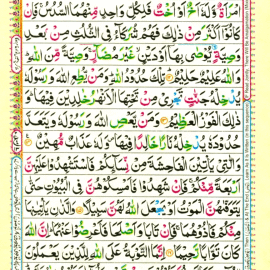 امْرَاَةٌ وَّلَهٗۤ اَخٌ اَوْ اُخْتٌ فَلِكُلِّ وَاحِدٍ مِّنْهُمَا السُّدُسُ ۚ فَاِنْ
كَانُوْۤا اَكْثَرَ مِنْ ذٰلِكَ فَهُمْ شُرَكَآءُ فِی الثُّلُثِ مِنْۢ بَعْدِ
وَصِیَّةٍ یُّوْصٰی بِهَاۤ اَوْ دَیْنٍ ۙ غَیْرَ مُضَآرٍّ ۚ وَصِیَّةً مِّنَ اللّٰهِ ؕ
وَاللّٰهُ عَلِیْمٌ حَلِیْمٌ ؕ تِلْكَ حُدُوْدُ اللّٰهِ ؕ وَمَنْ یُّطِعِ اللّٰهَ وَرَسُوْلَهٗ
یُدْخِلْهُ جَنّٰتٍ تَجْرِیْ مِنْ تَحْتِهَا الْاَنْهٰرُ خٰلِدِیْنَ فِیْهَا ؕ وَ
ذٰلِكَ الْفَوْزُ الْعَظِیْمُ وَمَنْ یَّعْصِ اللّٰهَ وَرَسُوْلَهٗ وَیَتَعَدَّ
حُدُوْدَهٗ یُدْخِلْهُ نَارًا خَالِدًا فِیْهَا ۪ وَلَهٗ عَذَابٌ مُّهِیْنٌ
وَالّٰتِیْ یَاْتِیْنَ الْفَاحِشَةَ مِنْ نِّسَآىِٕكُمْ فَاسْتَشْهِدُوْا عَلَیْهِنَّ
اَرْبَعَةً مِّنْكُمْ ۚ فَاِنْ شَهِدُوْا فَاَمْسِكُوْهُنَّ فِی الْبُیُوْتِ حَتّٰی
یَتَوَفّٰهُنَّ الْمَوْتُ اَوْ یَجْعَلَ اللّٰهُ لَهُنَّ سَبِیْلًا وَالَّذٰنِ یَاْتِیٰنِهَا
مِنْكُمْ فَاٰذُوْهُمَا ۚ فَاِنْ تَابَا وَاَصْلَحَا فَاَعْرِضُوْا عَنْهُمَا ؕ اِنَّ اللّٰهَ
كَانَ تَوَّابًا رَّحِیْمًا اِنَّمَا التَّوْبَةُ عَلَی اللّٰهِ لِلَّذِیْنَ یَعْمَلُوْنَ